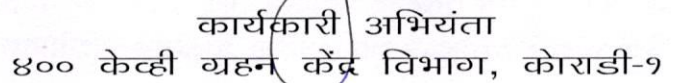 कार्यकारी अभियंता
४०० केव्ही ग्रहन केंद्र विभाग, कोराडी-१